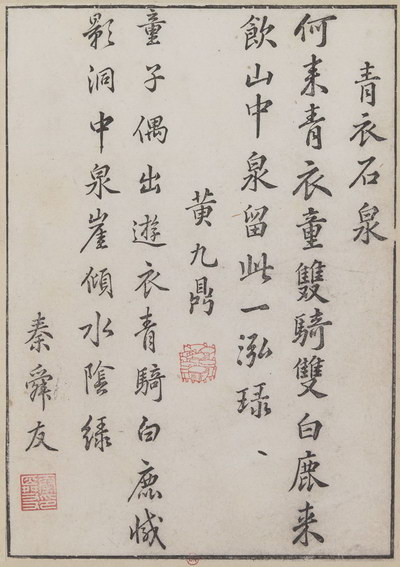 青衣石泉
何来青衣童雙騎雙白鹿来
飲山中泉留此一泓琭、
黄九鼎
童子偶出遊衣青騎白鹿滅
影洞中泉崖傾水陰綠
秦舜友